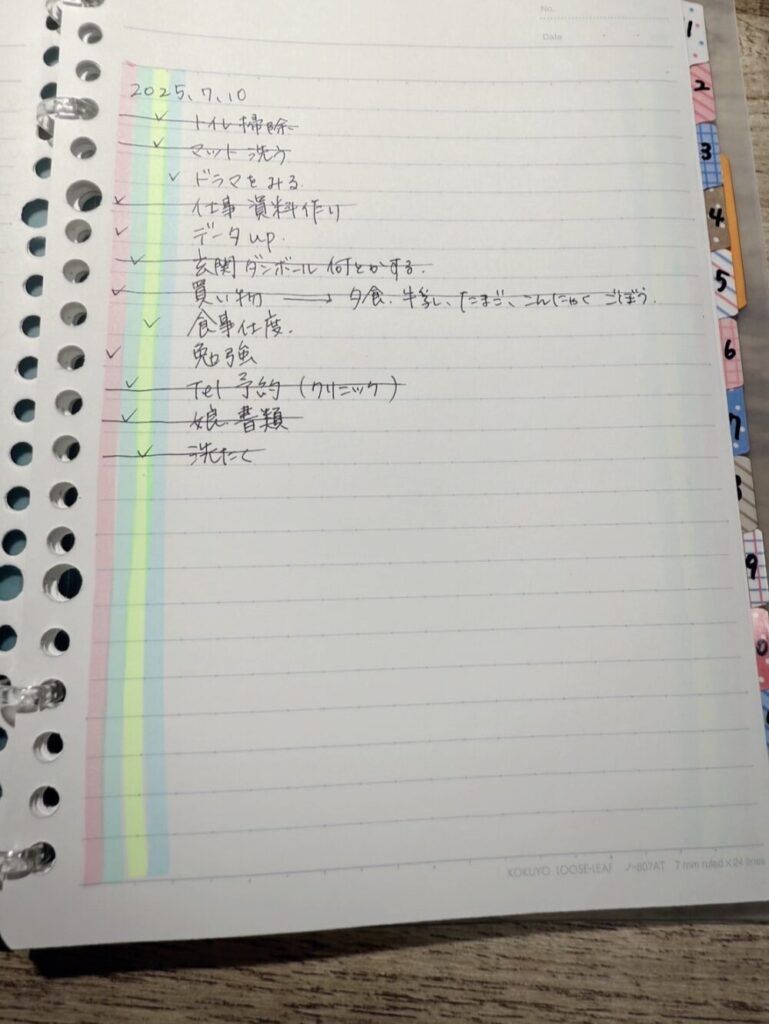 No.
Date
2025.7.10
トイレ掃除
マット洗う
ドラマをみる
仕事 資料作り
データup.
玄関ダンボール何とかする.
買い物 → 夕食. 牛乳、たまご、こんにゃく ごぼう.
食事仕度.
勉強
Tel 予約 (クリニック)
娘 書類
洗たく
KOKUYO LOOSE-LEAF ノ-807AT 7 mm ruled×24 lines
1
2
3
4
5
6
7
9